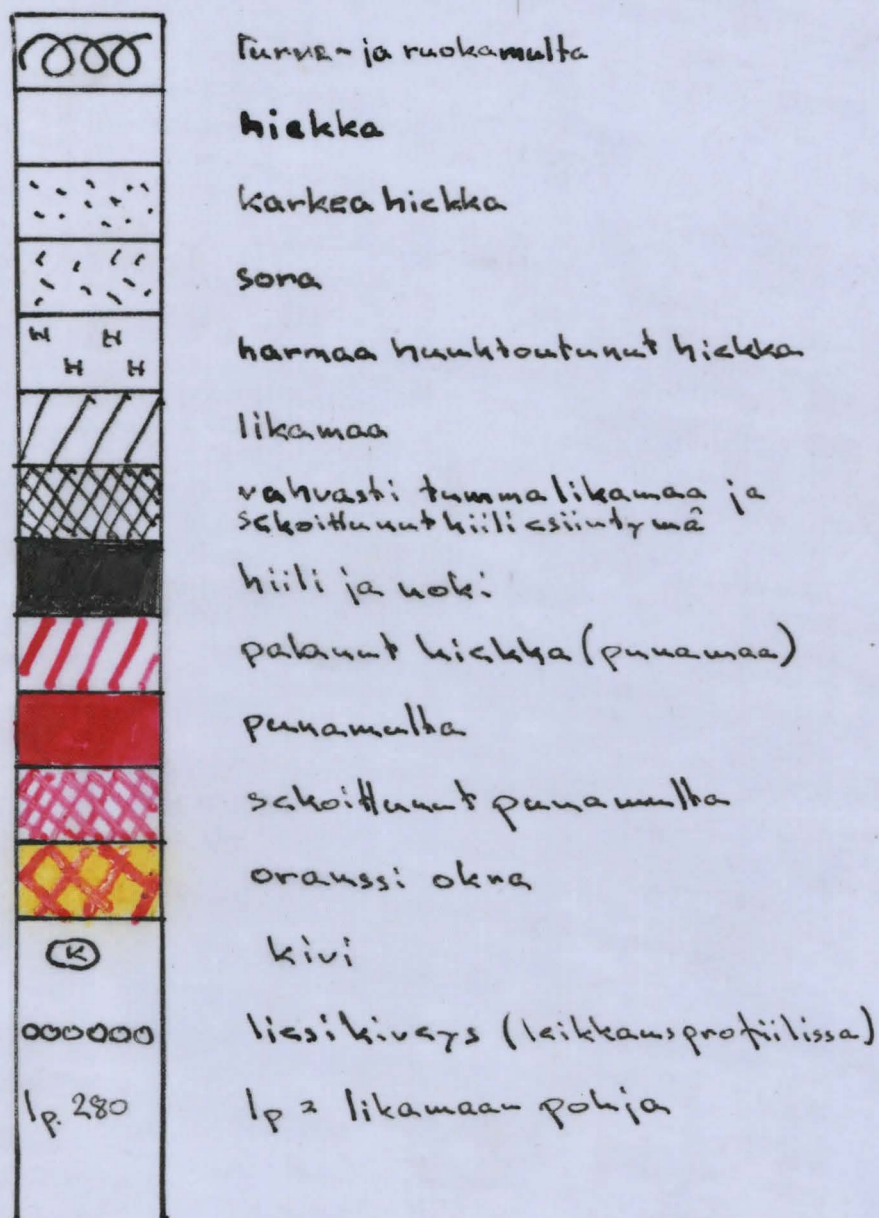 Turve- ja ruokamulta
hiekka
karkea hiekka
sora
H H
H H
harmaa huuhtoutunut hiekka
likamaa
vahvasti tumma likamaa ja
sekoittunut hiiliesiintymä
hiili ja noki
palanut hiekka (punamaa)
punamulta
sekoittunut punamulta
oranssi okra
K kivi
liesikiveys (leikkausprofiilissa)
lp. 280 lp = likamaan pohja